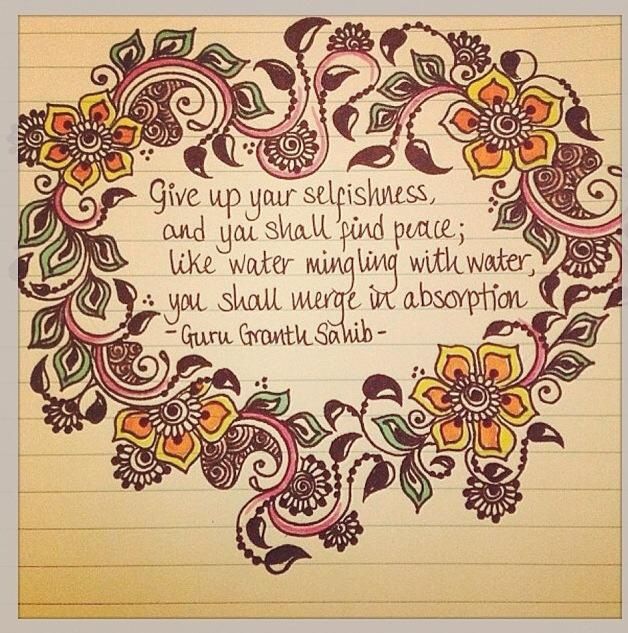 Give up your selfishness,
and you shall find peace;
like water mingling with water,
you shall merge in absorption
- Guru Granth Sahib -